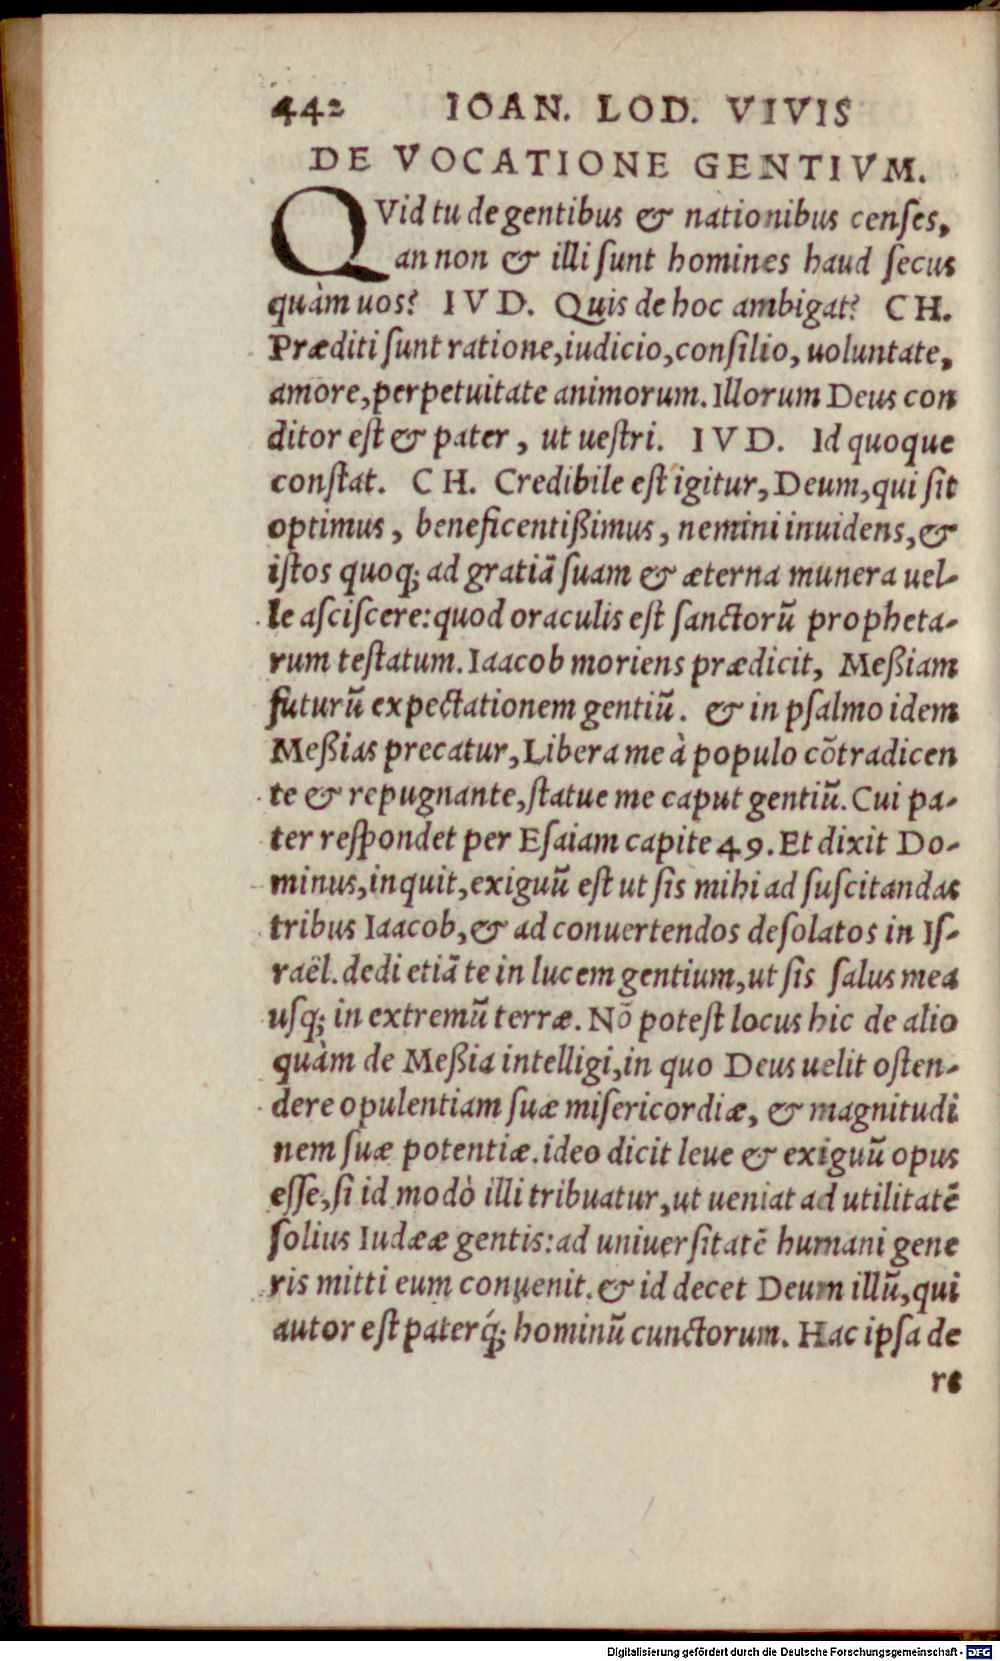 442 IOAN. LOD. VIVIS
DE VOCATIONE GENTIVM.
QVid tu de gentibus & nationibus censes,
an non & illi sunt homines haud secus
quàm uos? IVD. Quis de hoc ambigat? CH.
Præditi sunt ratione, iudicio, consilio, uoluntate,
amore, perpetuitate animorum. Illorum Deus con
ditor est & pater, ut uestri. IVD. Id quoque
constat. CH. Credibile est igitur, Deum, qui sit
optimus, beneficentißimus, nemini inuidens, &
istos quoq; ad gratiã suam & æterna munera uel-
le asciscere: quod oraculis est sanctorũ propheta-
rum testatum. Iaacob moriens prædicit, Meßiam
futurũ expectationem gentiũ. & in psalmo idem
Meßias precatur, Libera me à populo cõtradicen
te & repugnante, statue me caput gentiũ. Cui pa-
ter respondet per Esaiam capite 49. Et dixit Do-
minus, inquit, exiguũ est ut sis mihi ad suscitandas
tribus Iaacob, & ad conuertendos desolatos in Is-
raël. dedi etiã te in lucem gentium, ut sis salus mea
usq; in extremũ terræ. Nõ potest locus hic de alio
quàm de Meßia intelligi, in quo Deus uelit osten-
dere opulentiam suæ misericordiæ, & magnitudi
nem suæ potentiæ. ideo dicit leue & exiguũ opus
esse, si id modò illi tribuatur, ut ueniat ad utilitatẽ
solius Iudææ gentis: ad uniuersitatẽ humani gene
ris mitti eum conuenit. & id decet Deum illũ, qui
autor est paterq́; hominũ cunctorum. Hac ipsa de
re
Digitalisierung gefördert durch die Deutsche Forschungsgemeinschaft - DFG